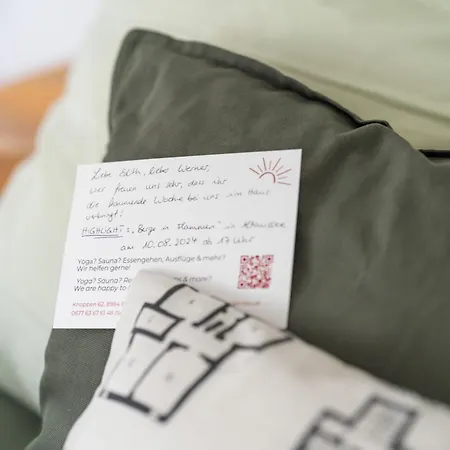 Liebe Edith, lieber Werner,
wir freuen uns sehr, dass ihr
die kommende Woche bei uns im Haus
verbringt!
HIGHLIGHT: "Berge in Flammen" in Altaussee
am 10.08.2024 ab 17 Uhr
Yoga? Sauna? Essengehen, Ausflüge & mehr?
Wir helfen gerne!
Yoga? Sauna? & more?
We are happy to
Knoppen 62, 8984
0677 63 67 61 48